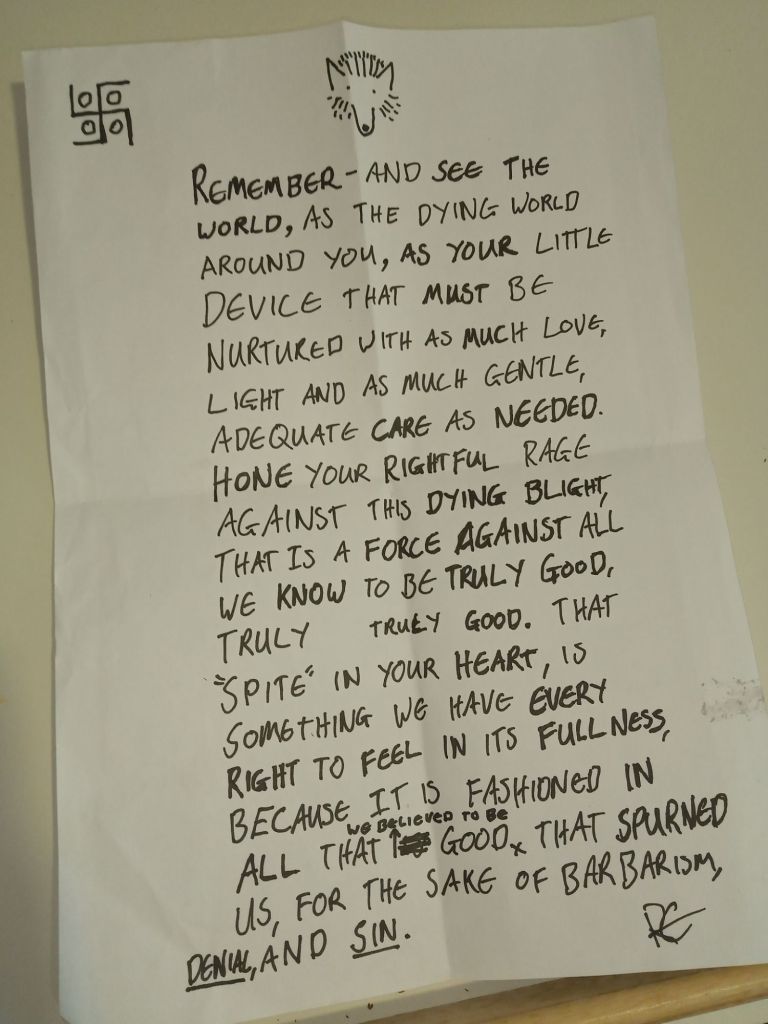 REMEMBER - AND SEE THE
WORLD, AS THE DYING WORLD
AROUND YOU, AS YOUR LITTLE
DEVICE THAT MUST BE
NURTURED WITH AS MUCH LOVE,
LIGHT AND AS MUCH GENTLE,
ADEQUATE CARE AS NEEDED.
HONE YOUR RIGHTFUL RAGE
AGAINST THIS DYING BLIGHT,
THAT IS A FORCE AGAINST ALL
WE KNOW TO BE TRULY GOOD,
TRULY TRULY GOOD. THAT
"SPITE" IN YOUR HEART, IS
SOMETHING WE HAVE EVERY
RIGHT TO FEEL IN ITS FULLNESS,
BECAUSE IT IS FASHIONED IN
WE BELIEVED TO BE
ALL THAT GOOD, THAT SPURNED
US, FOR THE SAKE OF BARBARISM,
DENIAL, AND SIN.
RC